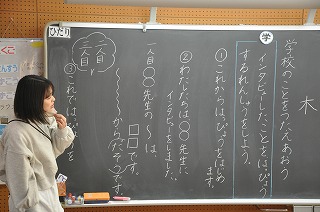 木
学校のことをつたえあおう
学
インタビューしたことをはっぴょう
するれんしゅうをしよう。
①これからはっぴょうをはじめ
ます。
②わたしたちは〇〇先生に
インタビューをしました。
一人目〇〇先生の〜は、
です。
からだそうです。
二人目
三人目
③これで
ひだり